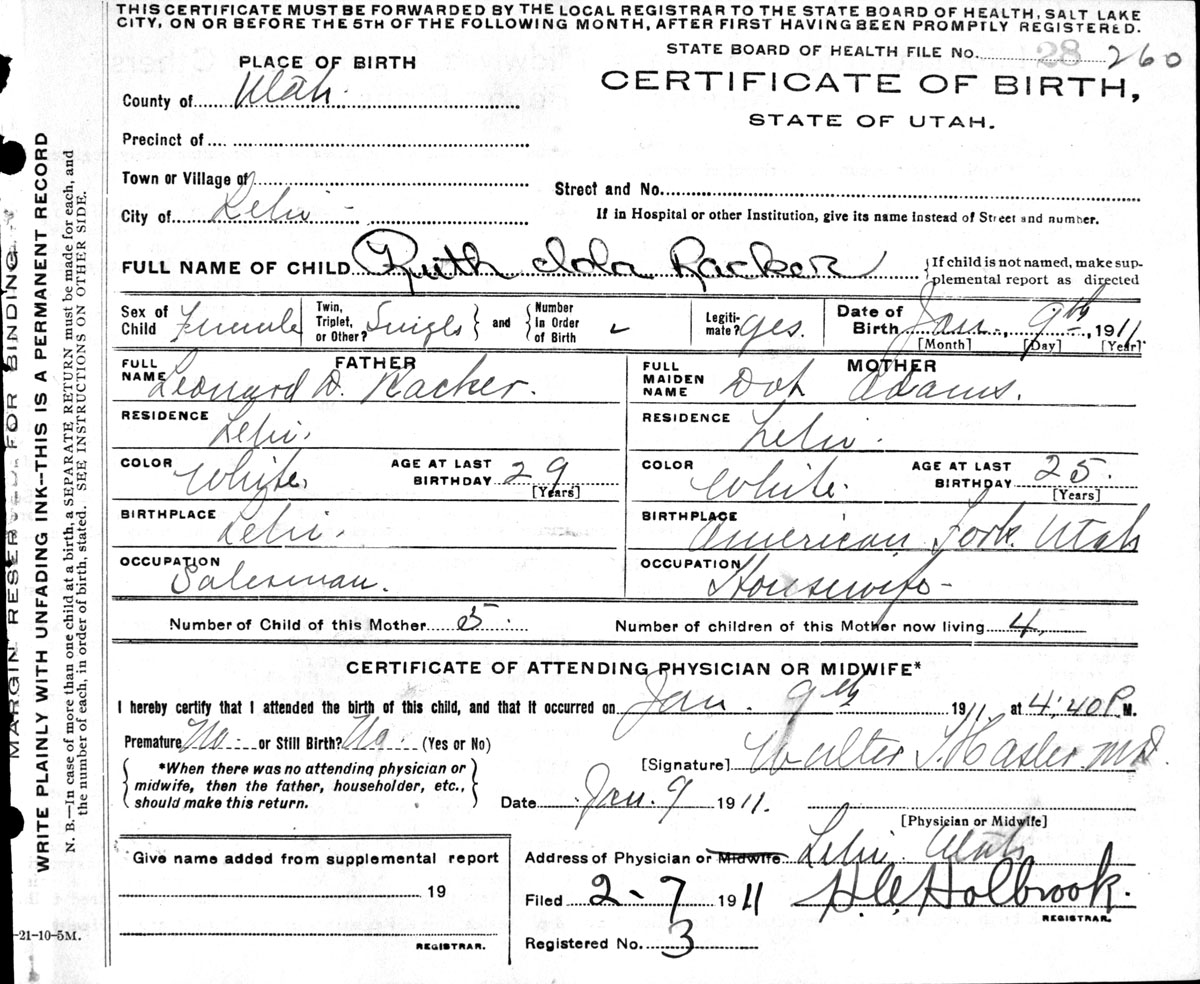 THIS CERTIFICATE MUST BE FORWARDED BY THE LOCAL REGISTRAR TO THE STATE BOARD OF HEALTH, SALT LAKE
CITY, ON OR BEFORE THE 5TH OF THE FOLLOWING MONTH, AFTER FIRST HAVING BEEN PROMPTLY REGISTERED.
STATE BOARD OF HEALTH FILE No. 28 260
PLACE OF BIRTH
CERTIFICATE OF BIRTH,
STATE OF UTAH.
County of Utah.
Precinct of
Town or Village of
Street and No.
City of Lehi -
If in Hospital or other Institution, give its name instead of Street and number.
FULL NAME OF CHILD Ruth Iola Racker
{If child is not named, make sup-
plemental report as directed
Sex of Child Female
Twin, Triplet, or Other? Single
and
Number In Order of Birth
Legiti-mate? yes.
Date of Birth Jan., 9th, 1911
[Month] [Day] [Year]
FATHER
FULL NAME Leonard D. Racker.
RESIDENCE Lehi.
COLOR White.
AGE AT LAST BIRTHDAY 29
[Years]
BIRTHPLACE Lehi.
OCCUPATION Salesman.
MOTHER
FULL MAIDEN NAME Dot Adams.
RESIDENCE Lehi.
COLOR White.
AGE AT LAST BIRTHDAY 25.
[Years]
BIRTHPLACE American Fork Utah
OCCUPATION Housewife-
Number of Child of this Mother 5.
Number of children of this Mother now living 4.
CERTIFICATE OF ATTENDING PHYSICIAN OR MIDWIFE*
I hereby certify that I attended the birth of this child, and that it occurred on Jan. 9th 1911 at 4:40 P. M.
Premature No. or Still Birth? No. (Yes or No)
[Signature] Walter T. Hasler M.D.
*When there was no attending physician or
midwife, then the father, householder, etc.,
should make this return.
Date Jan. 9 1911.
[Physician or Midwife]
Give name added from supplemental report
19
REGISTRAR.
Address of Physician or Midwife. Lehi. Utah
Filed 2-7 1911
H.C. Holbrook.
REGISTRAR.
Registered No. 3
-21-10-5M.
MARGIN RESERVED FOR BINDING
WRITE PLAINLY WITH UNFADING INK--THIS IS A PERMANENT RECORD
N. B.—In case of more than one child at a birth, a SEPARATE RETURN must be made for each, and
the number of each, in order of birth, stated. SEE INSTRUCTIONS ON OTHER SIDE.